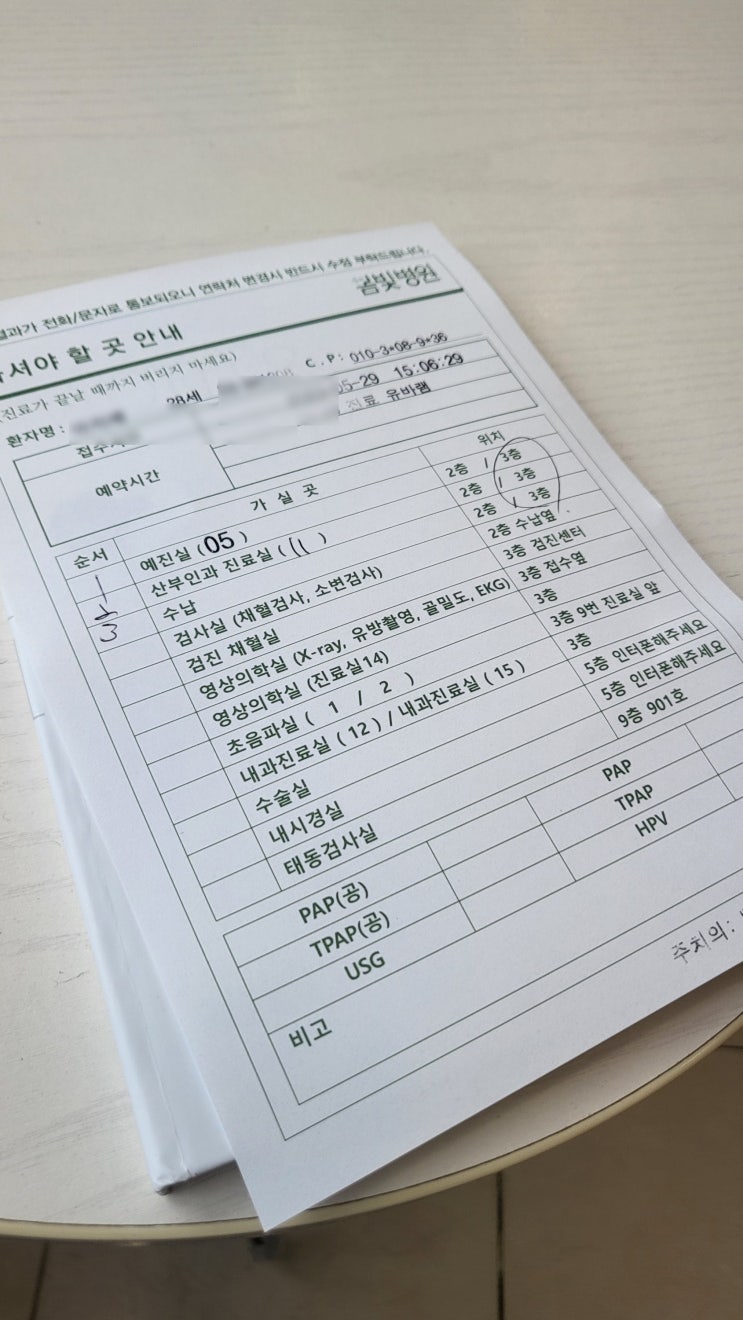 결과가 전화/문자로 통보되오니 연락처 변경시 반드시 수정 부탁드립니다.
봄빛병원
셔야 할 곳 안내
(진료가 끝날 때까지 버리지 마세요)
환자명 :
28세
C.P: 010-3*08-9*36
05-29 15:06:29
진료 유바램
예약시간
순서 가 실 곳 위치
1 예진실 (05) 2층 / 3층
2 산부인과 진료실 (11) 2층 / 3층
3 수납 2층 / 3층
검사실 (채혈검사, 소변검사) 2층 수납옆
검진 채혈실 3층 검진센터
영상의학실 (X-ray, 유방촬영, 골밀도, EKG) 3층 접수옆
영상의학실 (진료실14) 3층
초음파실 ( 1 / 2 ) 3층 9번 진료실 앞
내과진료실 ( 12 ) / 내과진료실 ( 15 ) 3층
수술실 5층 인터폰해주세요
내시경실 5층 인터폰해주세요
태동검사실 9층 901호
PAP(공) PAP
TPAP(공) TPAP
USG HPV
비고
주치의: